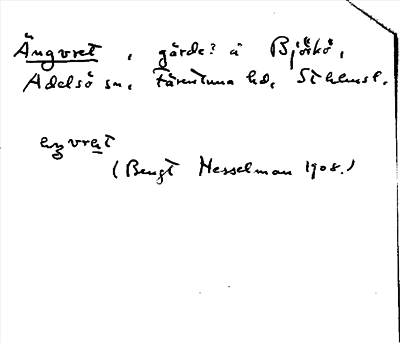 Ängvret, gärde? å Björkö,
Adelsö sn, Färentuna hd, Sthlmsl.
ęŋvrẹt
(Bengt Hesselman 1908.)